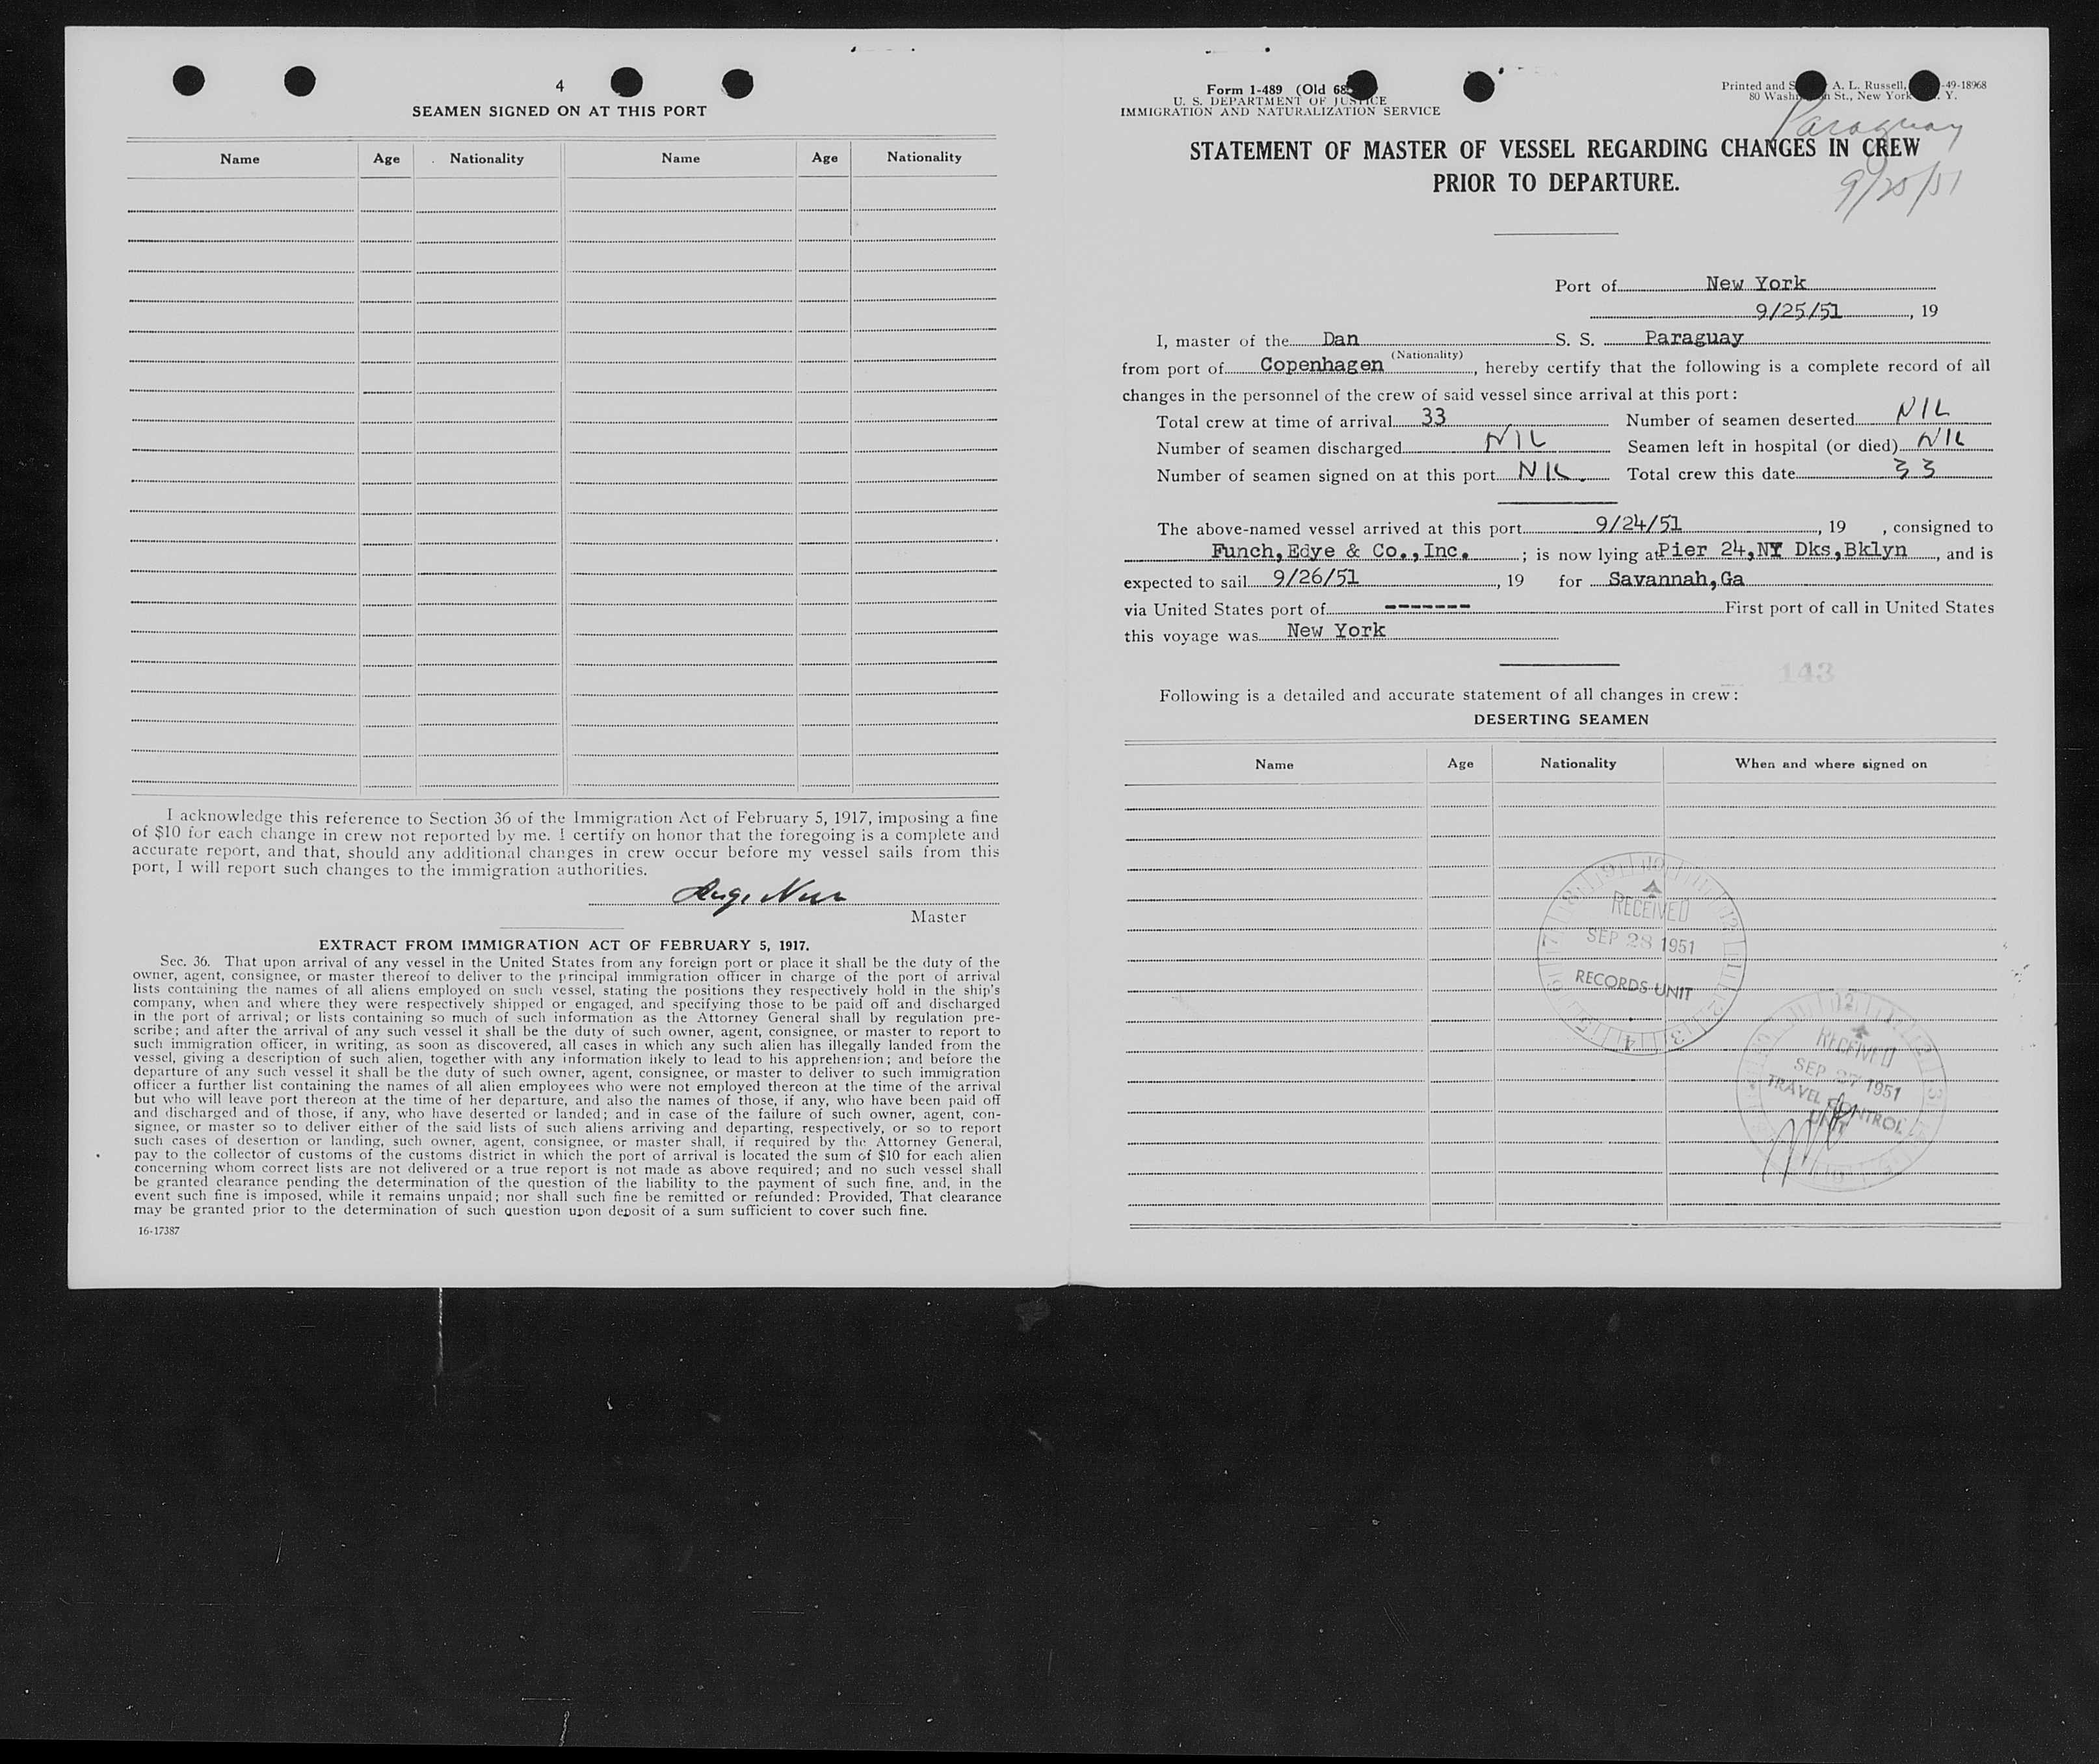 4
SEAMEN SIGNED ON AT THIS PORT
Name Age Nationality Name Age Nationality
I acknowledge this reference to Section 36 of the Immigration Act of February 5, 1917, imposing a fine
of $10 for each change in crew not reported by me. I certify on honor that the foregoing is a complete and
accurate report, and that, should any additional changes in crew occur before my vessel sails from this
port, I will report such changes to the immigration authorities.
Master
EXTRACT FROM IMMIGRATION ACT OF FEBRUARY 5, 1917.
Sec. 36. That upon arrival of any vessel in the United States from any foreign port or place it shall be the duty of the
owner, agent, consignee, or master thereof to deliver to the principal immigration officer in charge of the port of arrival
lists containing the names of all aliens employed on such vessel, stating the positions they respectively hold in the ship's
company, when and where they were respectively shipped or engaged, and specifying those to be paid off and discharged
in the port of arrival; or lists containing so much of such information as the Attorney General shall by regulation pre-
scribe; and after the arrival of any such vessel it shall be the duty of such owner, agent, consignee, or master to report to
such immigration officer, in writing, as soon as discovered, all cases in which any such alien has illegally landed from the
vessel, giving a description of such alien, together with any information likely to lead to his apprehension; and before the
departure of any such vessel it shall be the duty of such owner, agent, consignee, or master to deliver to such immigration
officer a further list containing the names of all alien employees who were not employed thereon at the time of the arrival
but who will leave port thereon at the time of her departure, and also the names of those, if any, who have been paid off
and discharged and of those, if any, who have deserted or landed; and in case of the failure of such owner, agent, con-
signee, or master so to deliver either of the said lists of such aliens arriving and departing, respectively, or so to report
such cases of desertion or landing, such owner, agent, consignee, or master shall, if required by the Attorney General,
pay to the collector of customs of the customs district in which the port of arrival is located the sum of $10 for each alien
concerning whom correct lists are not delivered or a true report is not made as above required; and no such vessel shall
be granted clearance pending the determination of the question of the liability to the payment of such fine, and, in the
event such fine is imposed, while it remains unpaid; nor shall such fine be remitted or refunded: Provided, That clearance
may be granted prior to the determination of such question upon deposit of a sum sufficient to cover such fine.
16-17387
Form 1-489 (Old 68
U. S. DEPARTMENT OF JUSTICE
IMMIGRATION AND NATURALIZATION SERVICE
Printed and S A. L. Russell, -49-18968
80 Wash n St., New York Y.
Paraguay
9/25/51
STATEMENT OF MASTER OF VESSEL REGARDING CHANGES IN CREW
PRIOR TO DEPARTURE.
Port of New York
9/25/51, 19
I, master of the Dan S. S. Paraguay
(Nationality)
from port of Copenhagen, hereby certify that the following is a complete record of all
changes in the personnel of the crew of said vessel since arrival at this port:
Total crew at time of arrival 33 Number of seamen deserted NIL
Number of seamen discharged NIL Seamen left in hospital (or died) NIL
Number of seamen signed on at this port NIL. Total crew this date 33
The above-named vessel arrived at this port 9/24/51, 19 , consigned to
Funch, Edye & Co., Inc. ; is now lying at Pier 24, NY Dks, Bklyn, and is
expected to sail 9/26/51, 19 for Savannah, Ga
via United States port of ------- First port of call in United States
this voyage was New York
143
Following is a detailed and accurate statement of all changes in crew:
DESERTING SEAMEN
Name Age Nationality When and where signed on
RECEIVED
SEP 28 1951
RECORDS UNIT
RECEIVED
SEP 27 1951
TRAVEL CONTROL
UNIT